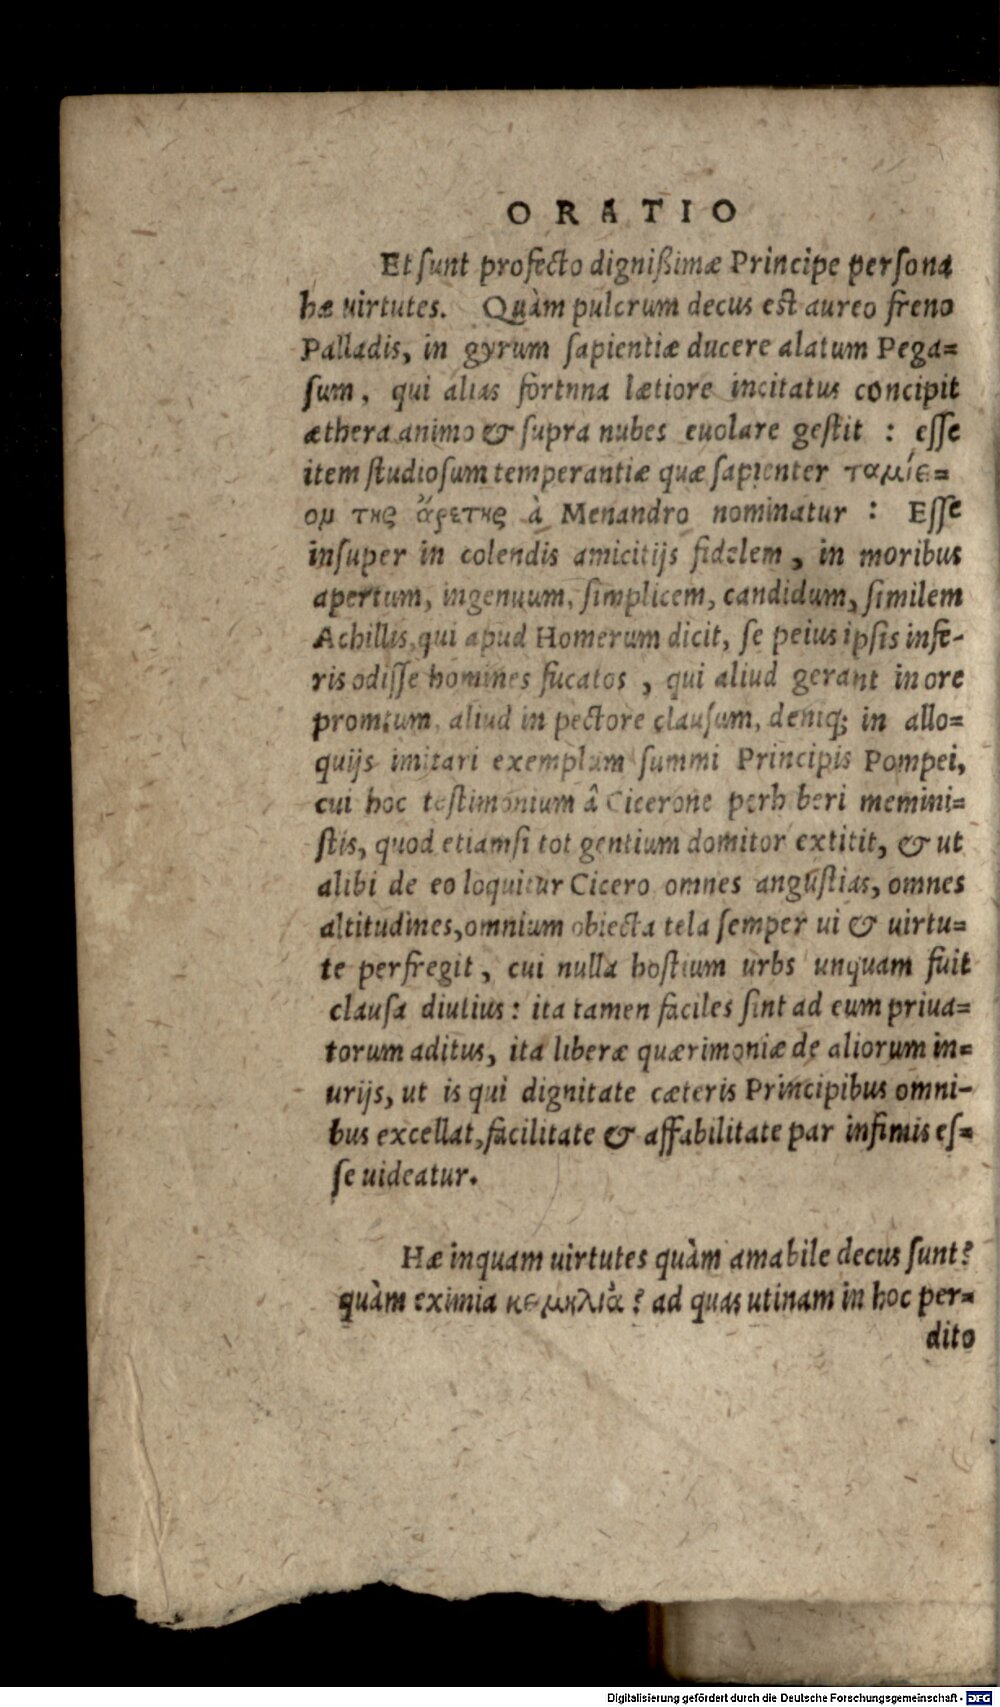 ORATIO
Et sunt profecto dignißimæ Principe persona
hæ uirtutes. Quàm pulcrum decus est aureo freno
Palladis, in gyrum sapientiæ ducere alatum Pega=
sum, qui alias fortnna lætiore incitatus concipit
æthera animo & supra nubes euolare gestit : esse
item studiosum temperantiæ quæ sapienter ταμίε=
ομ της ἄρετης à Menandro nominatur : Esse
insuper in colendis amicitijs fidelem, in moribus
apertum, ingenuum, simplicem, candidum, similem
Achillis, qui apud Homerum dicit, se peius ipsis infe-
ris odisse homines fucatos, qui aliud gerant in ore
promtum, aliud in pectore clausum, deniq; in allo=
quijs imitari exemplum summi Principis Pompei,
cui hoc testimonium â Cicerone perh beri memini=
stis, quod etiamsi tot gentium domitor extitit, & ut
alibi de eo loquitur Cicero omnes angustias, omnes
altitudines, omnium obiecta tela semper ui & uirtu=
te perfregit, cui nulla hostium urbs unquam fuit
clausa diutius: ita tamen faciles sint ad eum priua=
torum aditus, ita liberæ quærimoniæ de aliorum in=
iurijs, ut is qui dignitate cæteris Principibus omni-
bus excellat, facilitate & affabilitate par infimis es=
se uideatur.
Hæ inquam uirtutes quàm amabile decus sunt?
quàm eximia κεμηλιὰ? ad quas utinam in hoc per=
dito
Digitalisierung gefördert durch die Deutsche Forschungsgemeinschaft - DFG